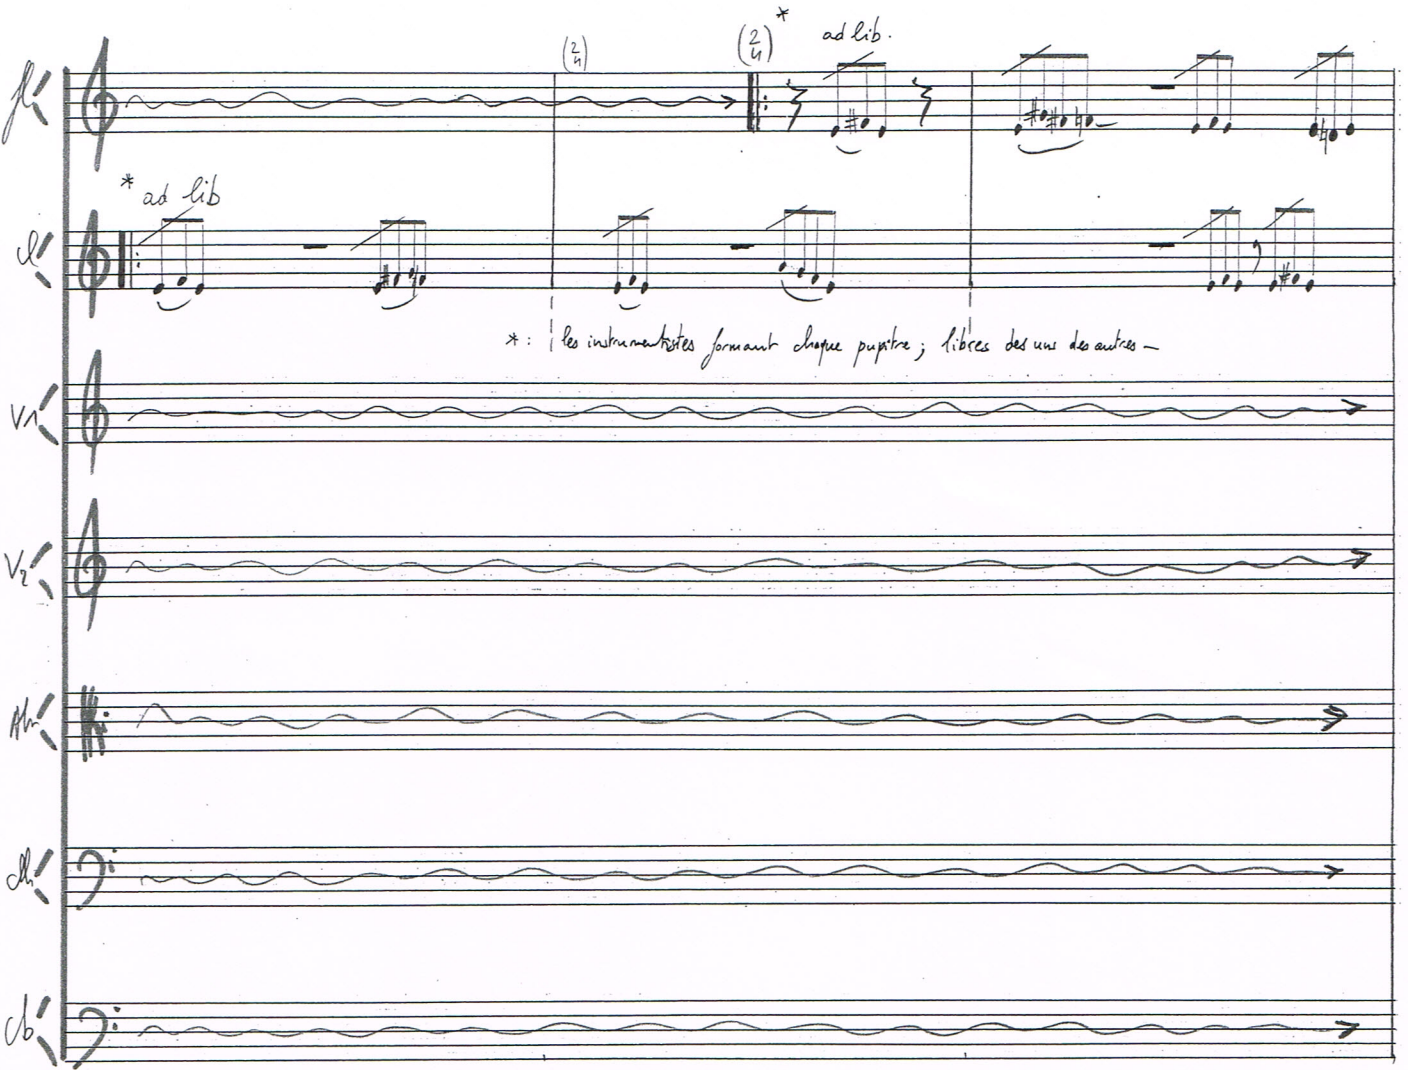 (2/4) (2/4) * ad lib.
fl
* ad lib
cl
* : les instrumentistes formant chaque pupitre ; libres des uns des autres _
V1
V2
Alt
cb